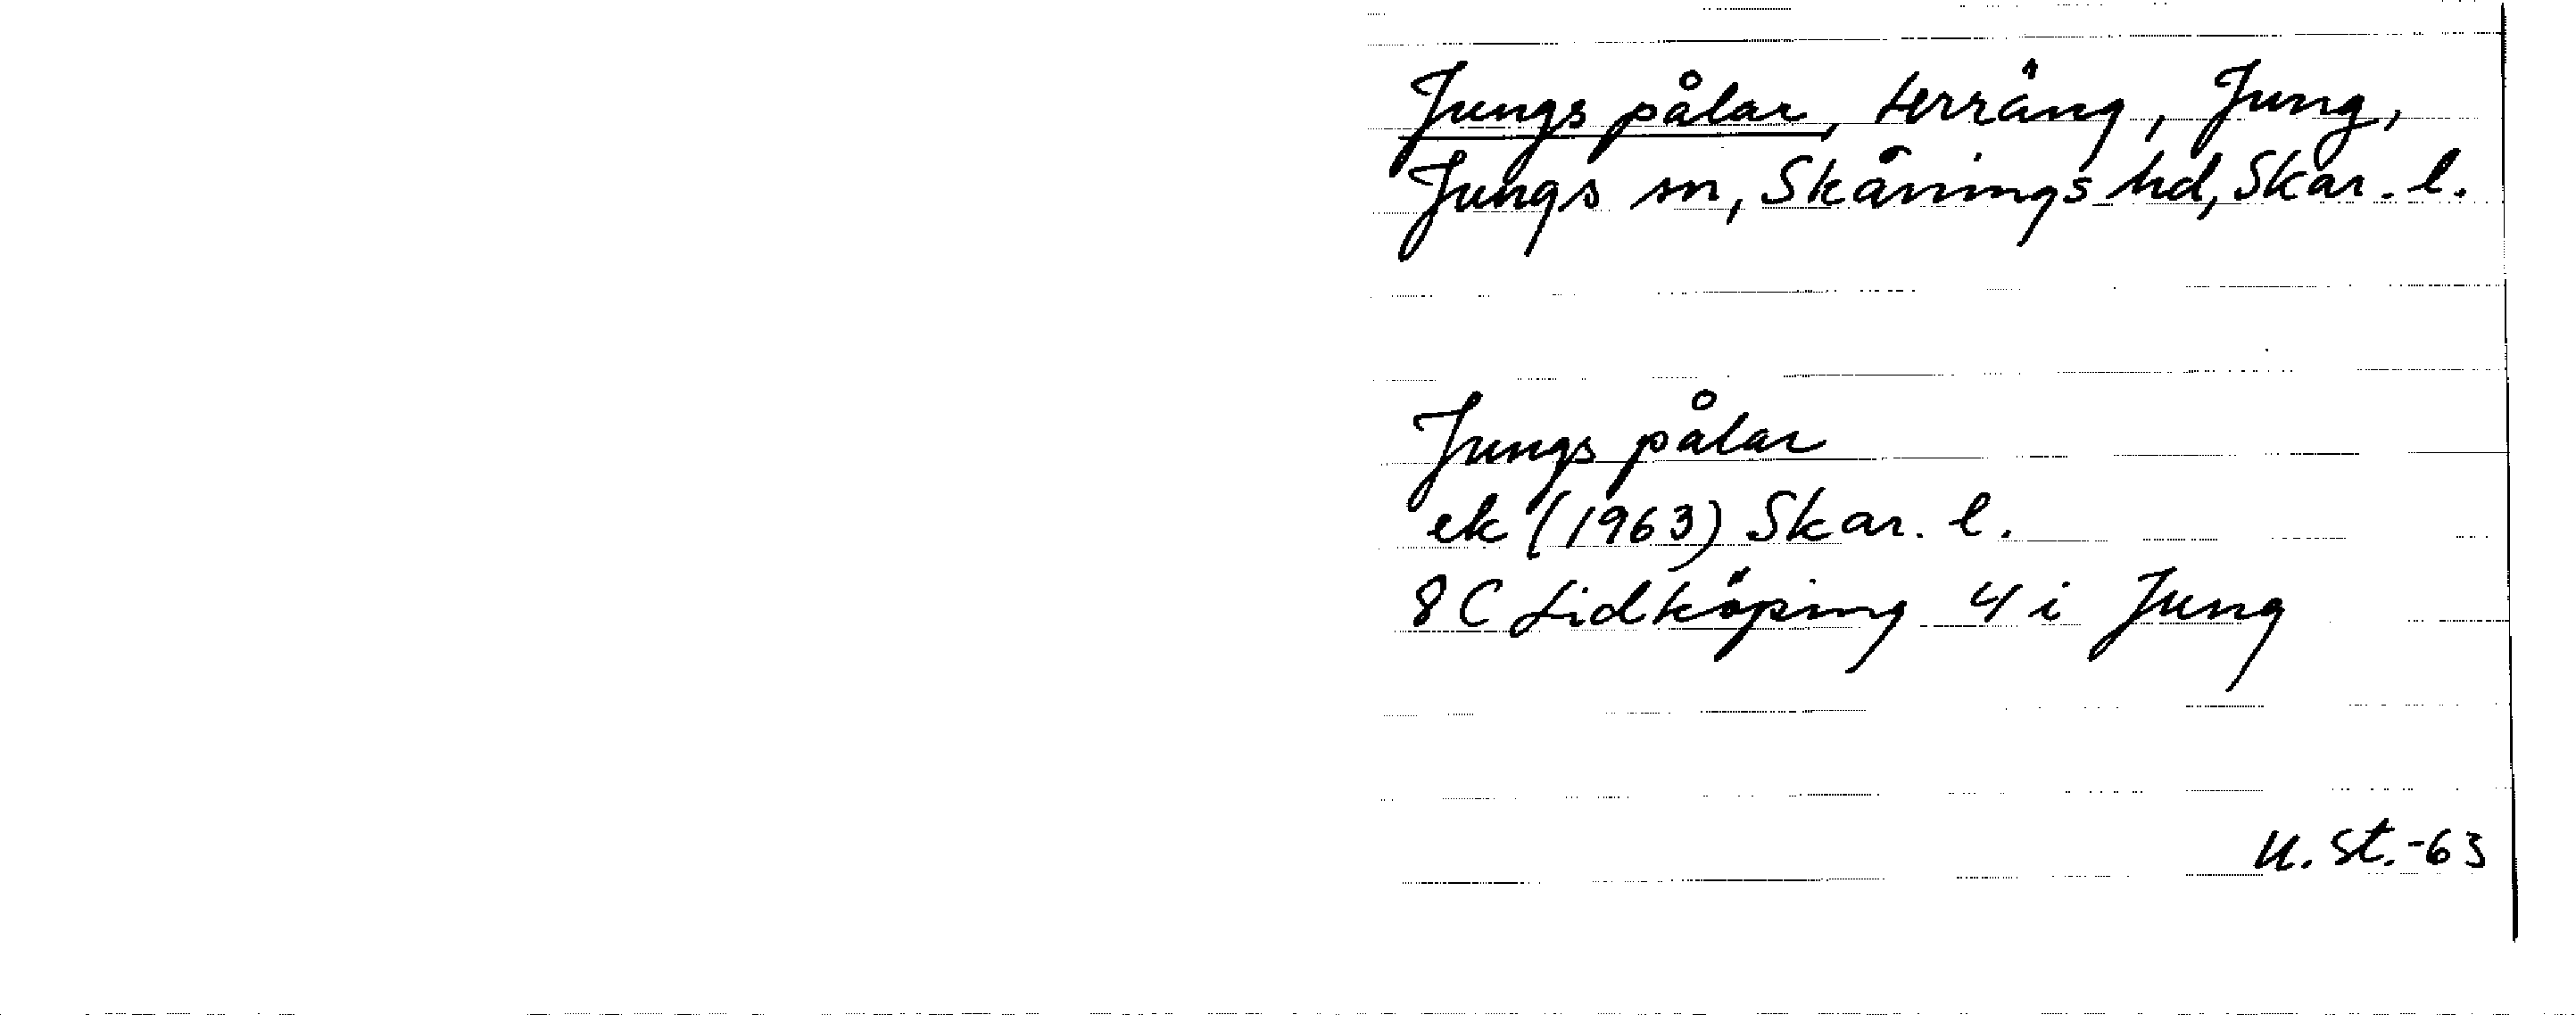 Jungs pålar, terräng, Jung,
Jungs sn, Skånings hd, Skar. l.
Jungs pålar
ek (1963) Skar. l.
8 C Lidköping 4 i Jung
U. St. -63